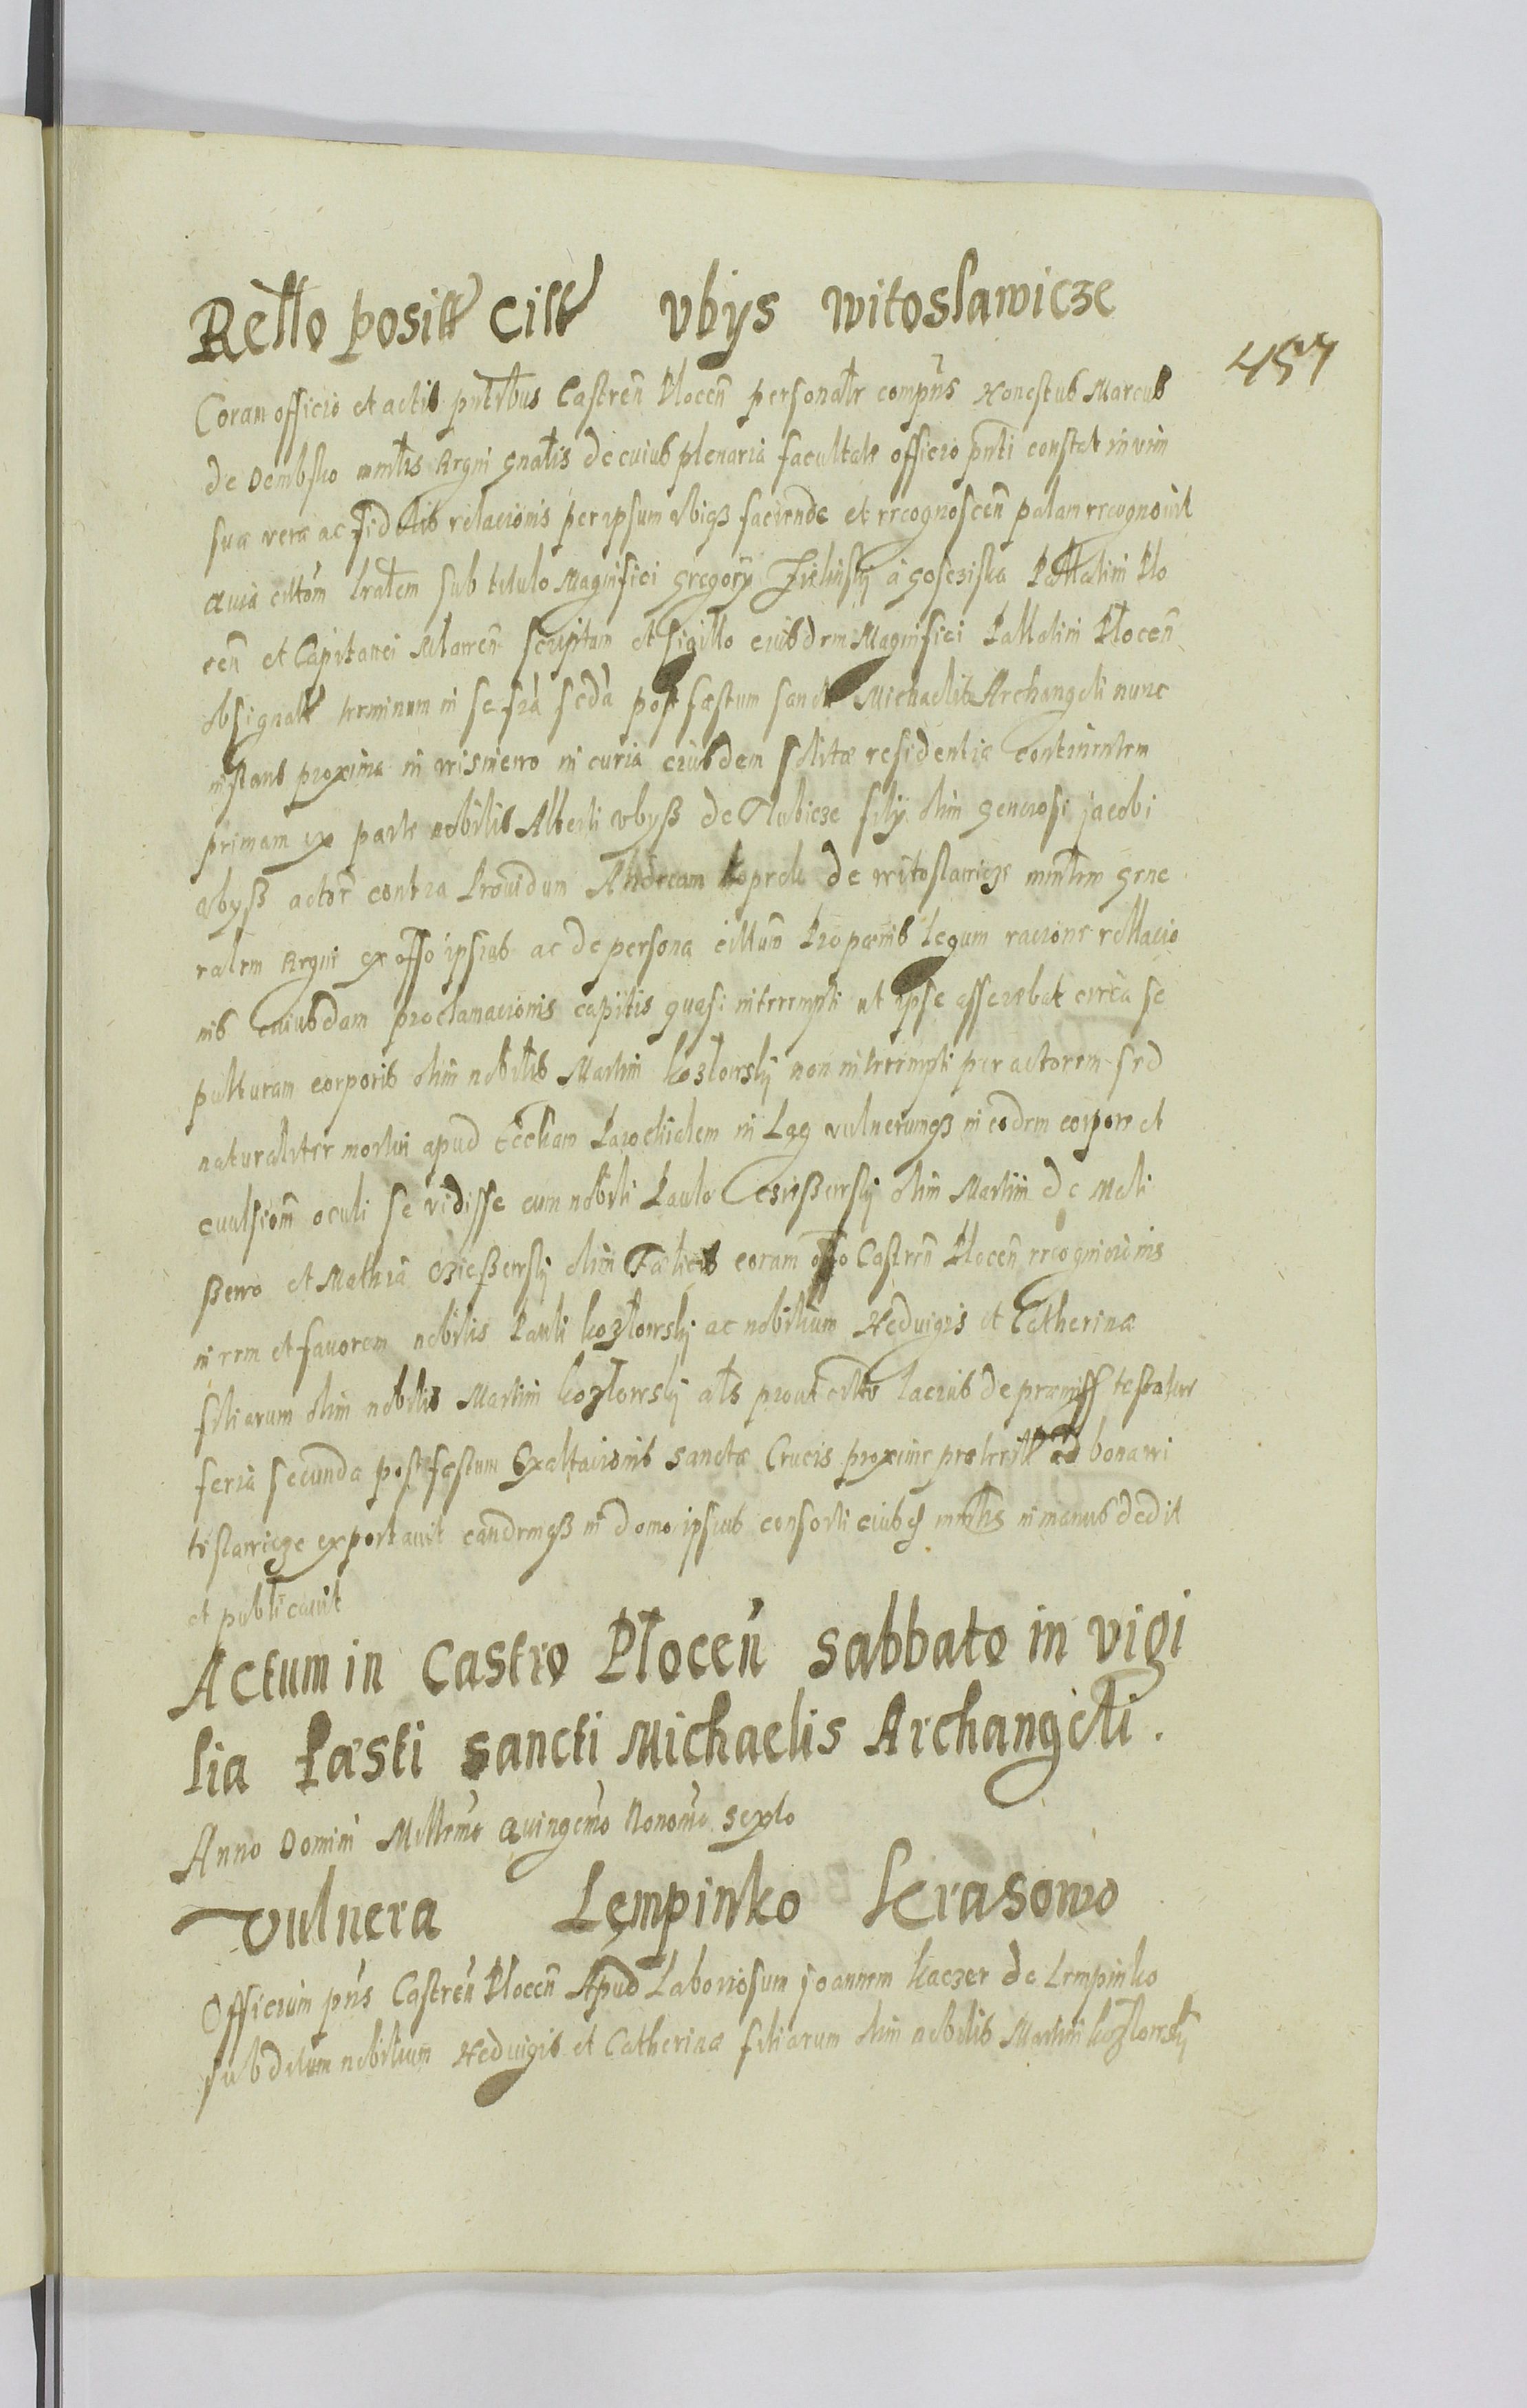 Rello positt Citt Ubys Witoslawicze
457
Coram officio et actis pntibus Castren Plocen personalr compns Honestus Marcus
de Dembsko mnlrs Regni gnalis de cuius plenaria facultate officio pnti constat in vim
suæ veræ ac fidelis relacionis per ipsum ubiqz faciendæ et recognoscen palam recognovit
quia citton lralem sub titulo Magnifici Gregory Zielinsky a Goscziska Pallatini Plo
cen et Capitanei Mlawen scriptam et sigillo eiusdem Magnifici Pallatini Plocen
obsignatt terminum in se fria scda post fæstum sancti Michaelis Archangeli nunc
instans proxima in Wisniewo in curia eiusdem solitæ residentiæ continentem
primam ex parte nobilis Alberti Ubyß de Slubicze filij olim generosi Jacobi
Ubyß actor contra Providum Andream Koprek de Witoslawicze mnlrm gene
ralem Regni ex offo ipsius ac de persona cittum Pro pænis legum racione rellacio
nis cuiusdam proclamacionis capitis quasi interempti ut ipse asserebat circa se
pulturam corporis olim nobilis Martini Kozlowsky non interempti per actorem sed
naturaliter mortui apud Eccliam Parochialem in Leg vulnerumqz in eodem corpore et
evulsiom oculi se vidisse cum nobili Paulo Czießewsky olim Martini de Meli
ßewo et Mathia Czießewsky olim Fælicis coram offo Castren Plocen recognicionis
in rem et favorem nobilis Pauli Kozlowsky ac nobilium Hedvigis et Catherinæ
filiarum olim nobilis Martini Kozlowsky als prout citto lacius de præmiss testatur
feria secunda post fæstum Exaltacionis Sanctæ Crucis proxime præteritt ad bona Wi
toslawicze exportavit eandemqß in domo ipsius consorti eiusq mnlris in manus dedit
et publicavit
Actum in Castro Plocen Sabbato in vigi
lia Fæsti Sancti Michaelis Archangeli.
Anno Domini Millemo Quingemo Nonomo Sexto
Vulnera Lempinko Krasowo
Officium pns Castren Plocen Apud Laboriosum Joannem Kaczer de Lempinko
subditum nobilium Hedvigis et Catherinæ filiarum olim nobilis Martini Kozlowsky